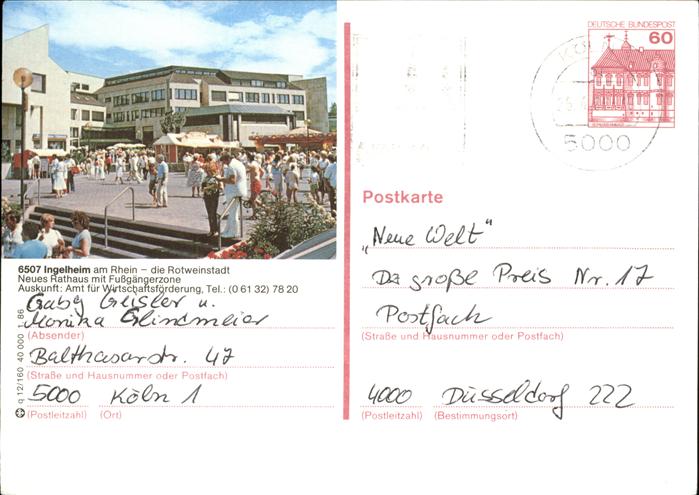 DEUTSCHE BUNDESPOST
60
5000
Postkarte
6507 Ingelheim am Rhein – die Rotweinstadt
Neues Rathaus mit Fußgängerzone
Auskunft: Amt für Wirtschaftsförderung, Tel.: (0 61 32) 78 20
Gaby Geisler u.
Monika Glindmeier
(Absender)
Balthasarstr. 47
(Straße und Hausnummer oder Postfach)
5000 Köln 1
(Postleitzahl) (Ort)
q 12/160 40 000 1.86
„Neue Welt"
Da große Preis Nr. 17
Postfach
(Straße und Hausnummer oder Postfach)
4000 Düsseldorf 222
(Postleitzahl) (Bestimmungsort)